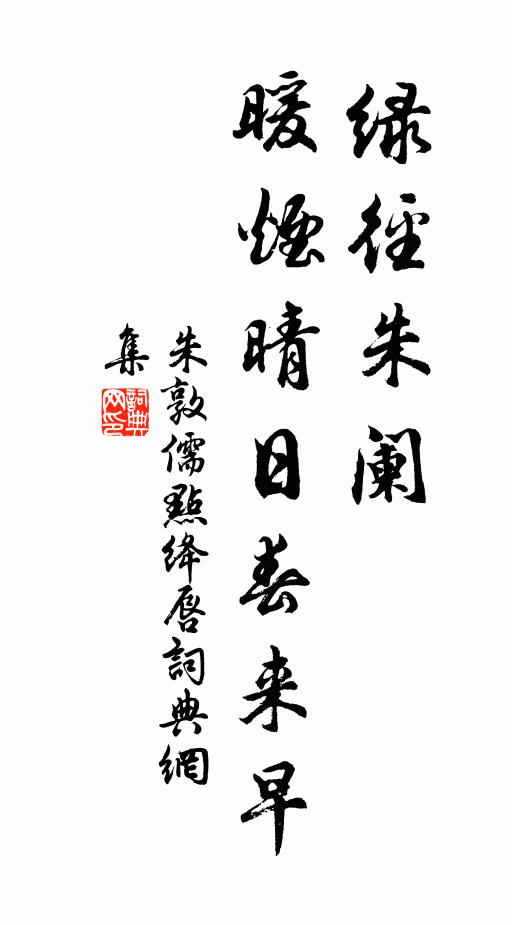 绿径朱阑
暖烟晴日春来早
朱敦儒點绛唇詞典網
集
詞典网印